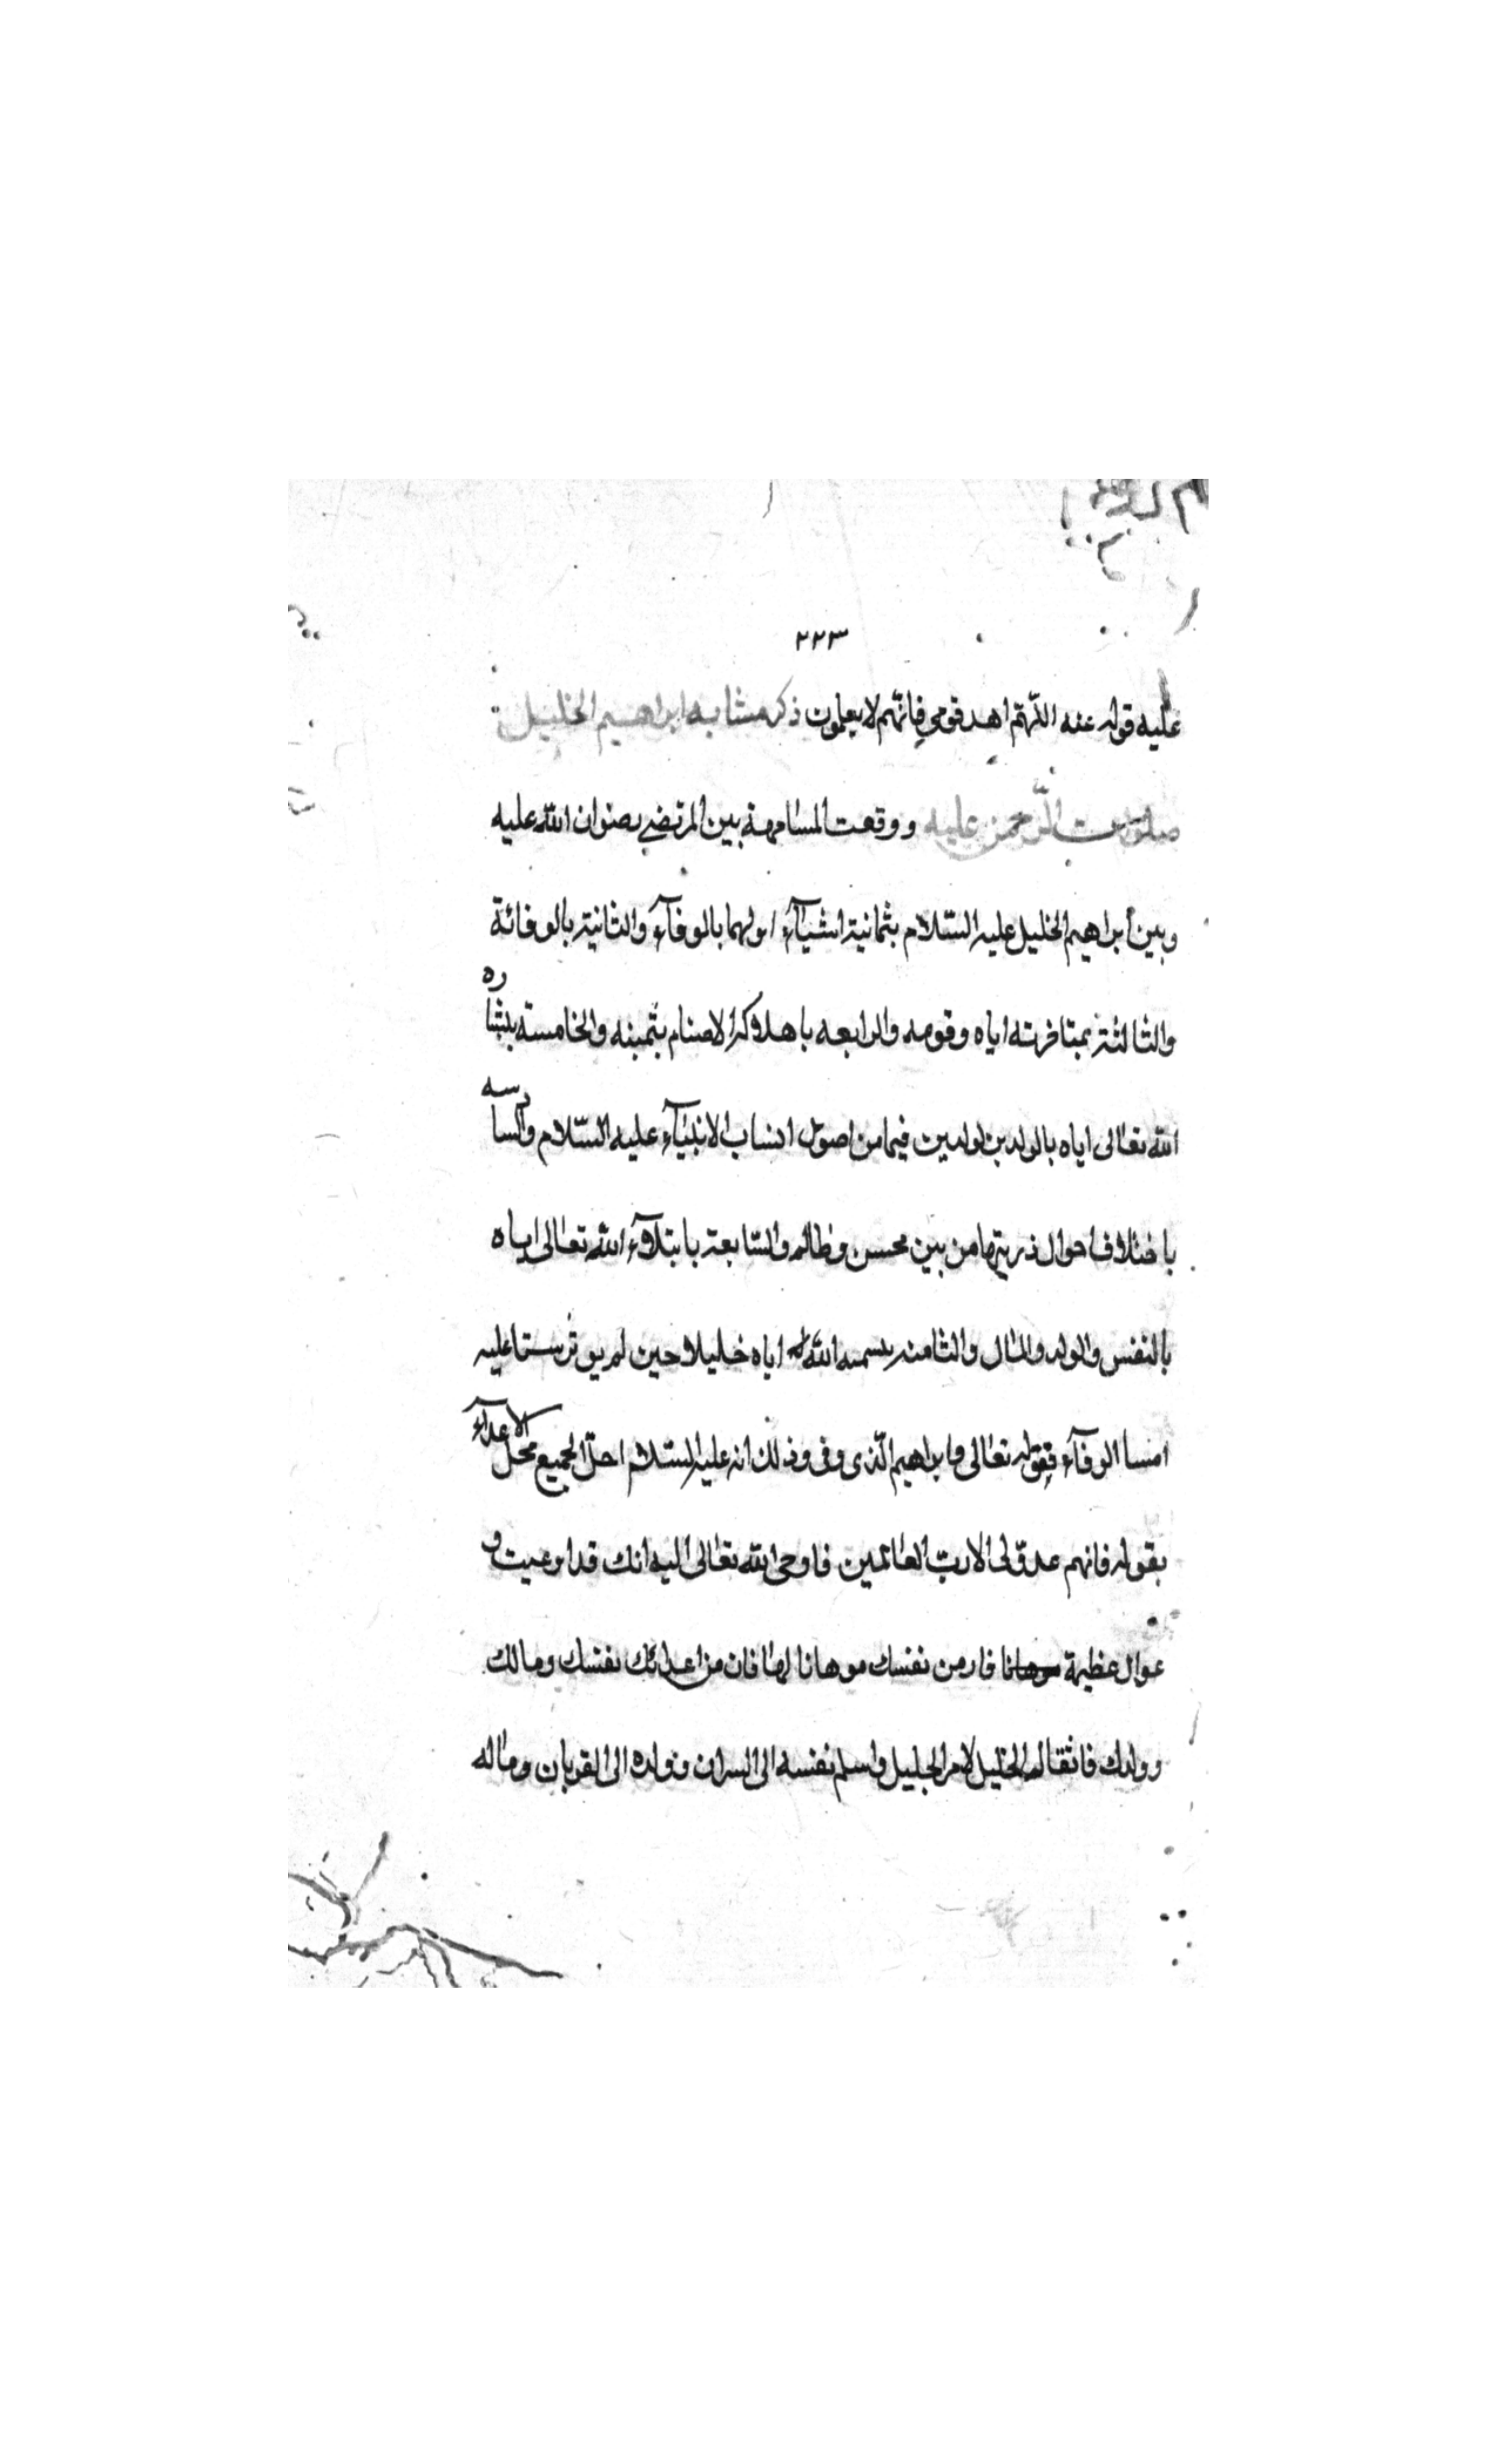 ٢٢٣
عليه قوله عنه اللهم اهد قومي فانهم لا يعلمون ذكر مشابه ابراهيم الخليل
صلوات الرحمن عليه ووقعت المشابهة بين المرتضى رضوان الله عليه
وبين ابراهيم الخليل عليه السلام بثمانية اشياء اولها بالوفاء والثانية بالوقاية
والثالثة بمناظرته اباه وقومه والرابعه باهلاك الاصنام بيمينه والخامسة ببشاره
الله تعالى اياه بالولدين لولدين فيما من اصول انساب الانبياء عليه السلام والسادسه
باختلاف احوال ذريتهما من بين محسن وظالم والسابعة بابتلاء الله تعالى اياه
بالنفس والولد والمال والثامنه بتسميه الله اياه خليلا حين لم يوثر شيئا عليه
اما الوفاء فقوله تعالى وابراهيم الذي وفى وذلك انه عليه السلام احل الجميع محل الاعداء
بقوله فانهم عدو لى الا رب العالمين فاوحى الله تعالى اليه انك قد ادعيت
دعوى عظيمة فار من نفسك موهانا لها فان من اعدائك نفسك ومالك
وولدك فانتقاله الخليل لامر الجليل واسلم نفسه الى النيران وولده الى القربان وماله